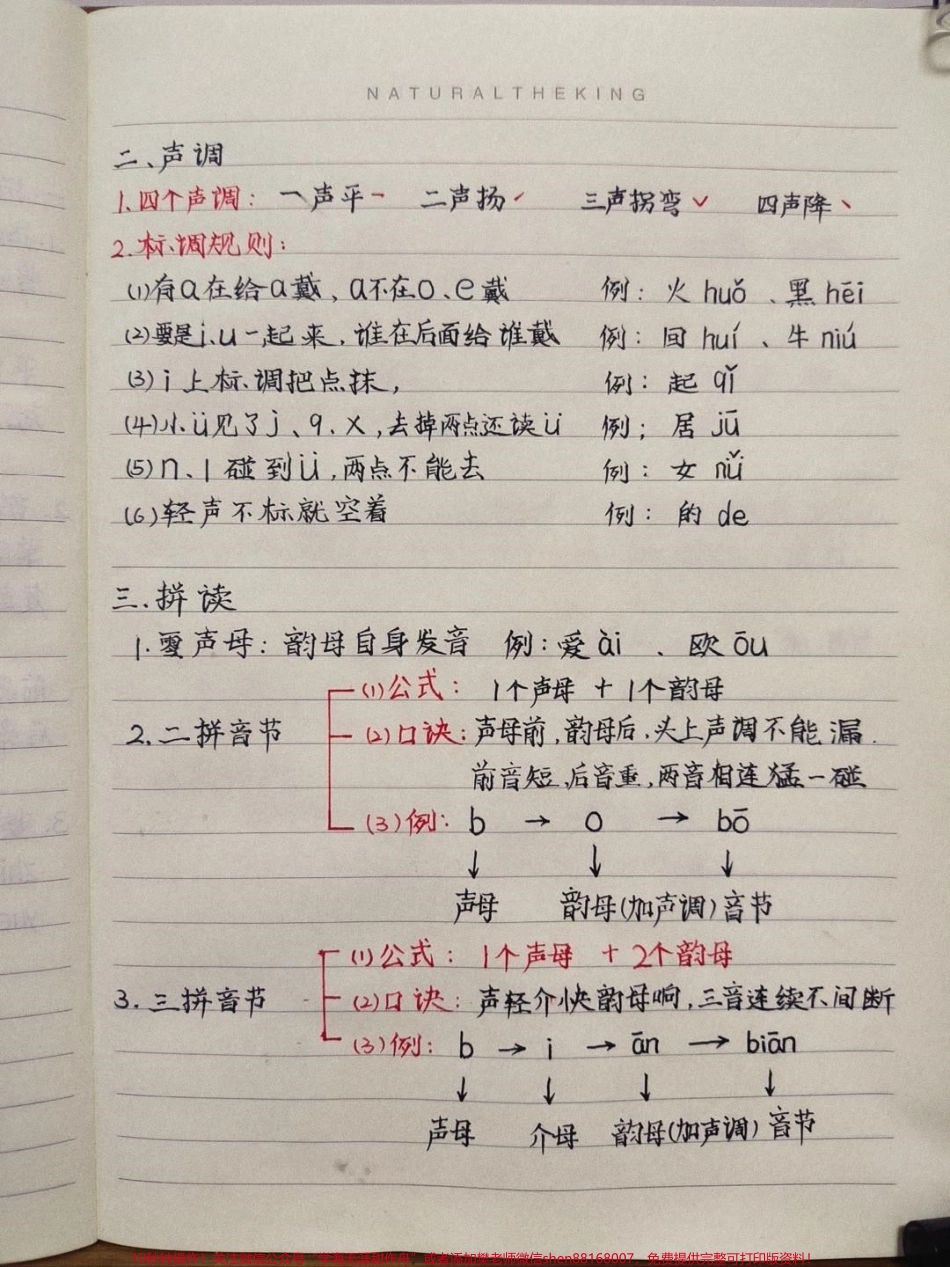 NATURALTHEKING
二、声调
1.四个声调： 一声平ˉ 二声扬ˊ 三声拐弯ˇ 四声降ˋ
2.标调规则：
(1)有ɑ在给ɑ戴，ɑ不在o、e戴 例：火 huǒ 、黑 hēi
(2)要是i、u一起来，谁在后面给谁戴 例：回 huí 、牛 niú
(3)i上标调把点抹， 例：起 qǐ
(4)小ü见了j、q、x，去掉两点还读ü 例；居 jū
(5)n、l碰到ü，两点不能去 例：女 nǚ
(6)轻声不标就空着 例：的 de
三.拼读
1.零声母：韵母自身发音 例：爱 ài 、欧 ōu
(1)公式： 1个声母 + 1个韵母
2.二拼音节 (2)口诀：声母前，韵母后，头上声调不能漏.
前音短，后音重，两音相连猛一碰
(3)例： b → o → bō
↓ ↓ ↓
声母 韵母(加声调) 音节
(1)公式： 1个声母 + 2个韵母
3.三拼音节 (2)口诀：声轻介快韵母响，三音连续不间断
(3)例： b → i → ān → biān
↓ ↓ ↓ ↓
声母 介母 韵母(加声调) 音节